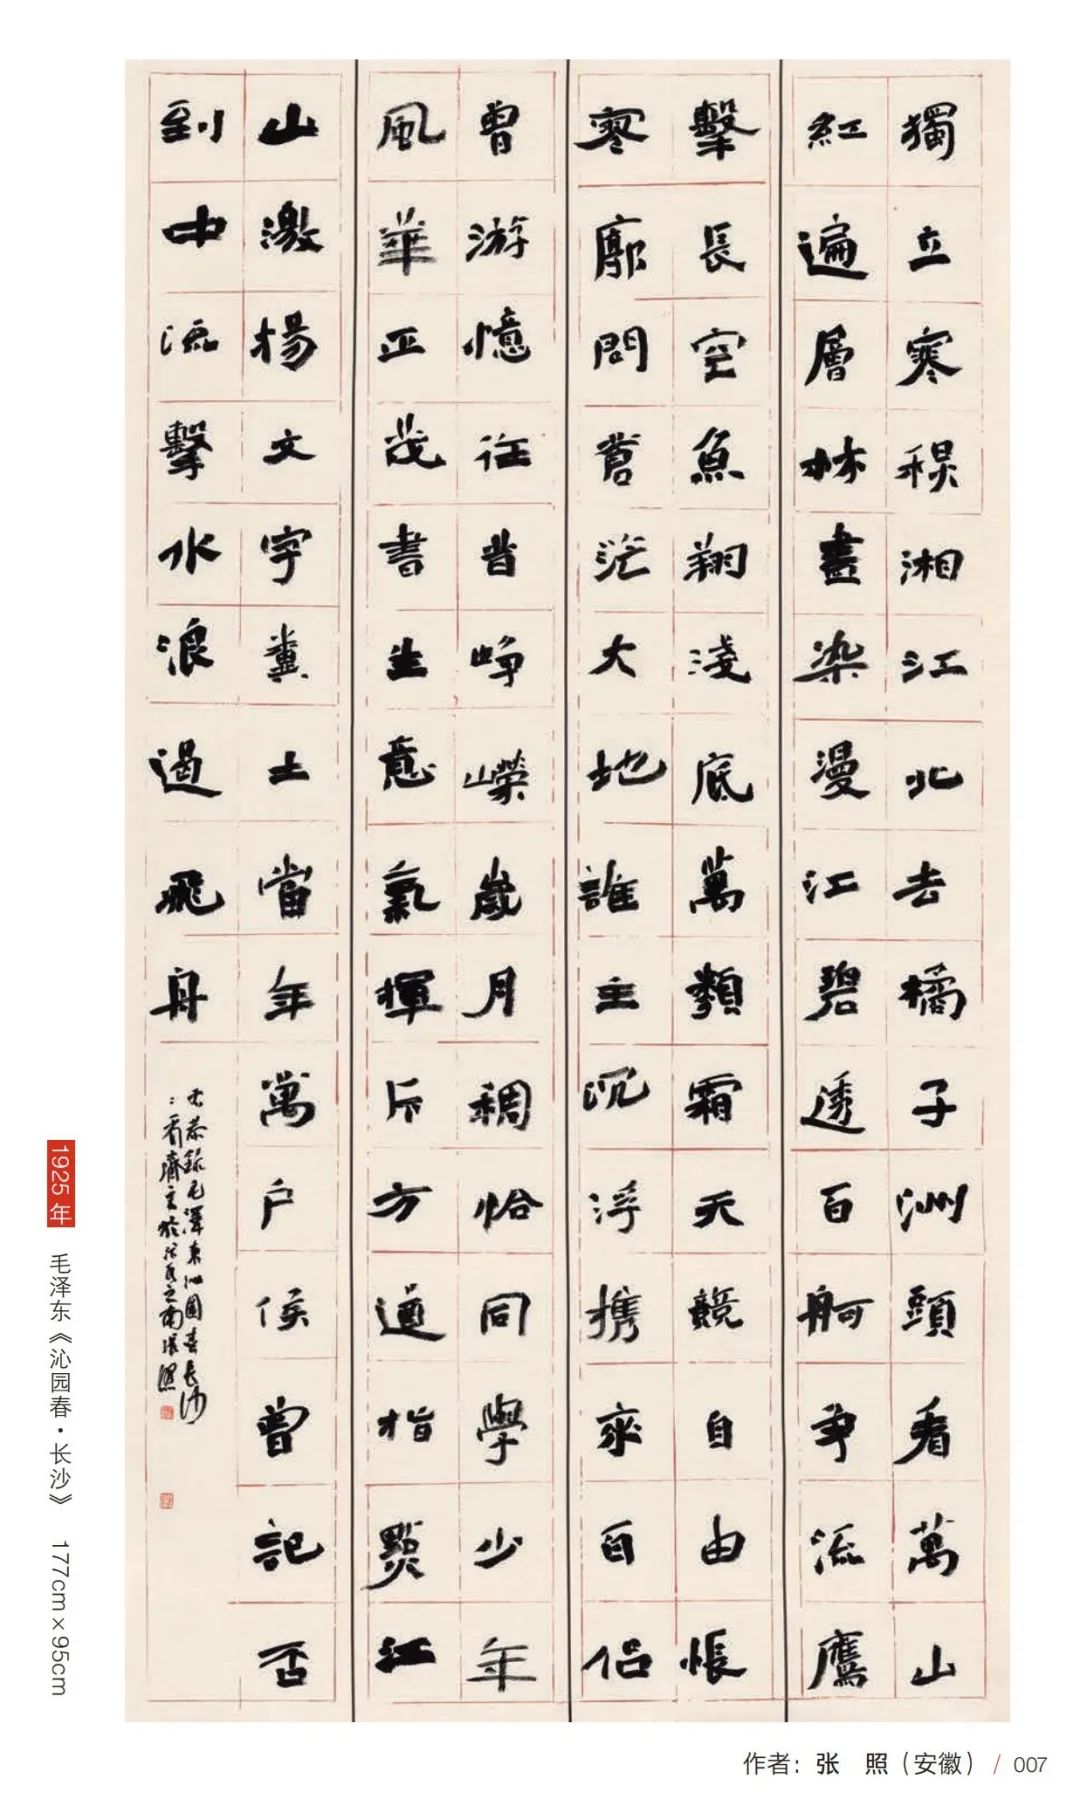 獨立寒秋湘江北去橘子洲頭看萬山
紅遍層林盡染漫江碧透百舸争流鷹
擊長空魚翔淺底萬類霜天競自由悵
寥廓問蒼茫大地誰主沉浮携來百侣
曾游憶往昔峥嶸歲月稠恰同學少年
風華正茂書生意氣揮斥方遒指點江
山激揚文字糞土當年萬户侯曾記否
到中流擊水浪遏飛舟
恭録毛澤東沁園春長沙
之南張照
1925年 毛泽东《沁园春·长沙》 177cm×95cm
作者：张 照（安徽）/ 007